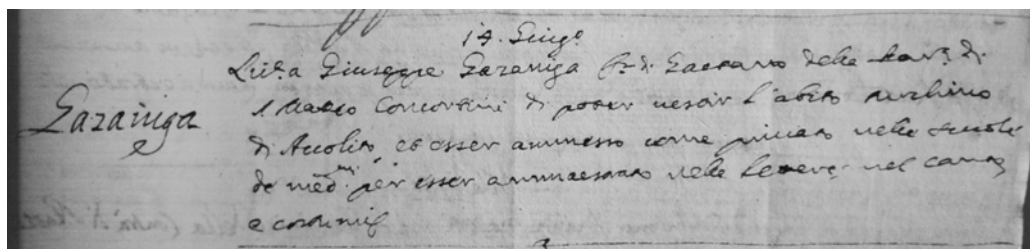 14. Giug.o
Lic.a Giuseppe Gazaniga f. di Gaetano della Par. di
Gazaniga
S. Marco Concortini di poter vestir l'abito turchino
di Acolito et esser ammesso come privato nelle scuole
de med.mi per esser ammaestrato nelle lettere nel canto
e cerimonie